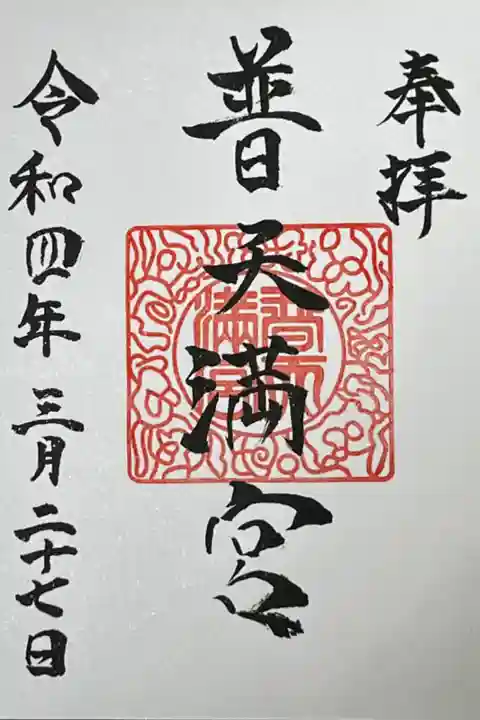 奉拝
普天満宮
普天
満宮
令和四年三月二十七日